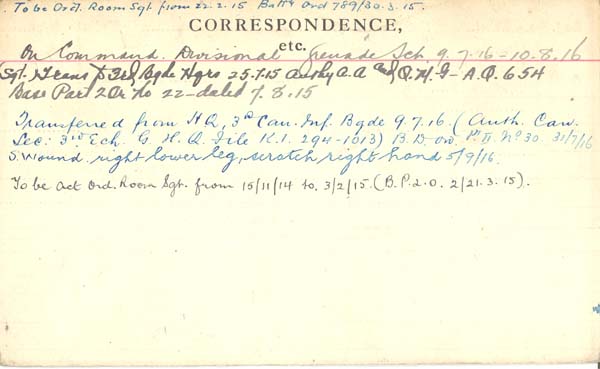 To be Ord. Room Sgt. from 22.2.15 Battn Ord 789/30.3.15.
CORRESPONDENCE,
etc.
On Command. Divisional Grenade Sch. 9.7.16-10.8.16
Sgt. Trans to 3rd Bgde Hqrs 25.7.15 Authy A.A. and Q.M.G-A.Q. 654
Base Part 2 Or No 22-dated 7.8.15
Transferred from H.Q, 3rd Can. Inf. Bgde 9.7.16. (Auth. Can.
Sec: 3rd Ech. G.H.Q. File K.1. 294-1013) B.D. ord. Pt II. No 30. 31/7/16
S. Wound. right lower leg, scratch right hand 5/9/16.
To be Act Ord. Room Sgt. from 15/11/14 to 3/2/15. (B.P.2.O. 2/21.3.15).